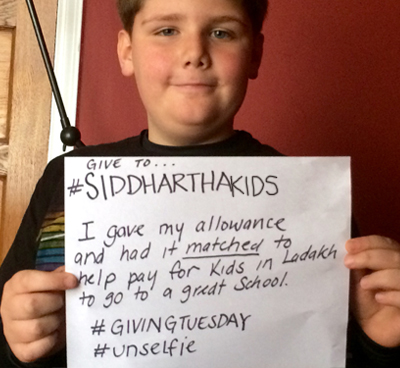 GIVE TO...
#SIDDHARTHAKIDS
I gave my allowance
and had it matched to
help pay for Kids in Ladakh
to go to a great School.
#GIVINGTUESDAY
#unselfie